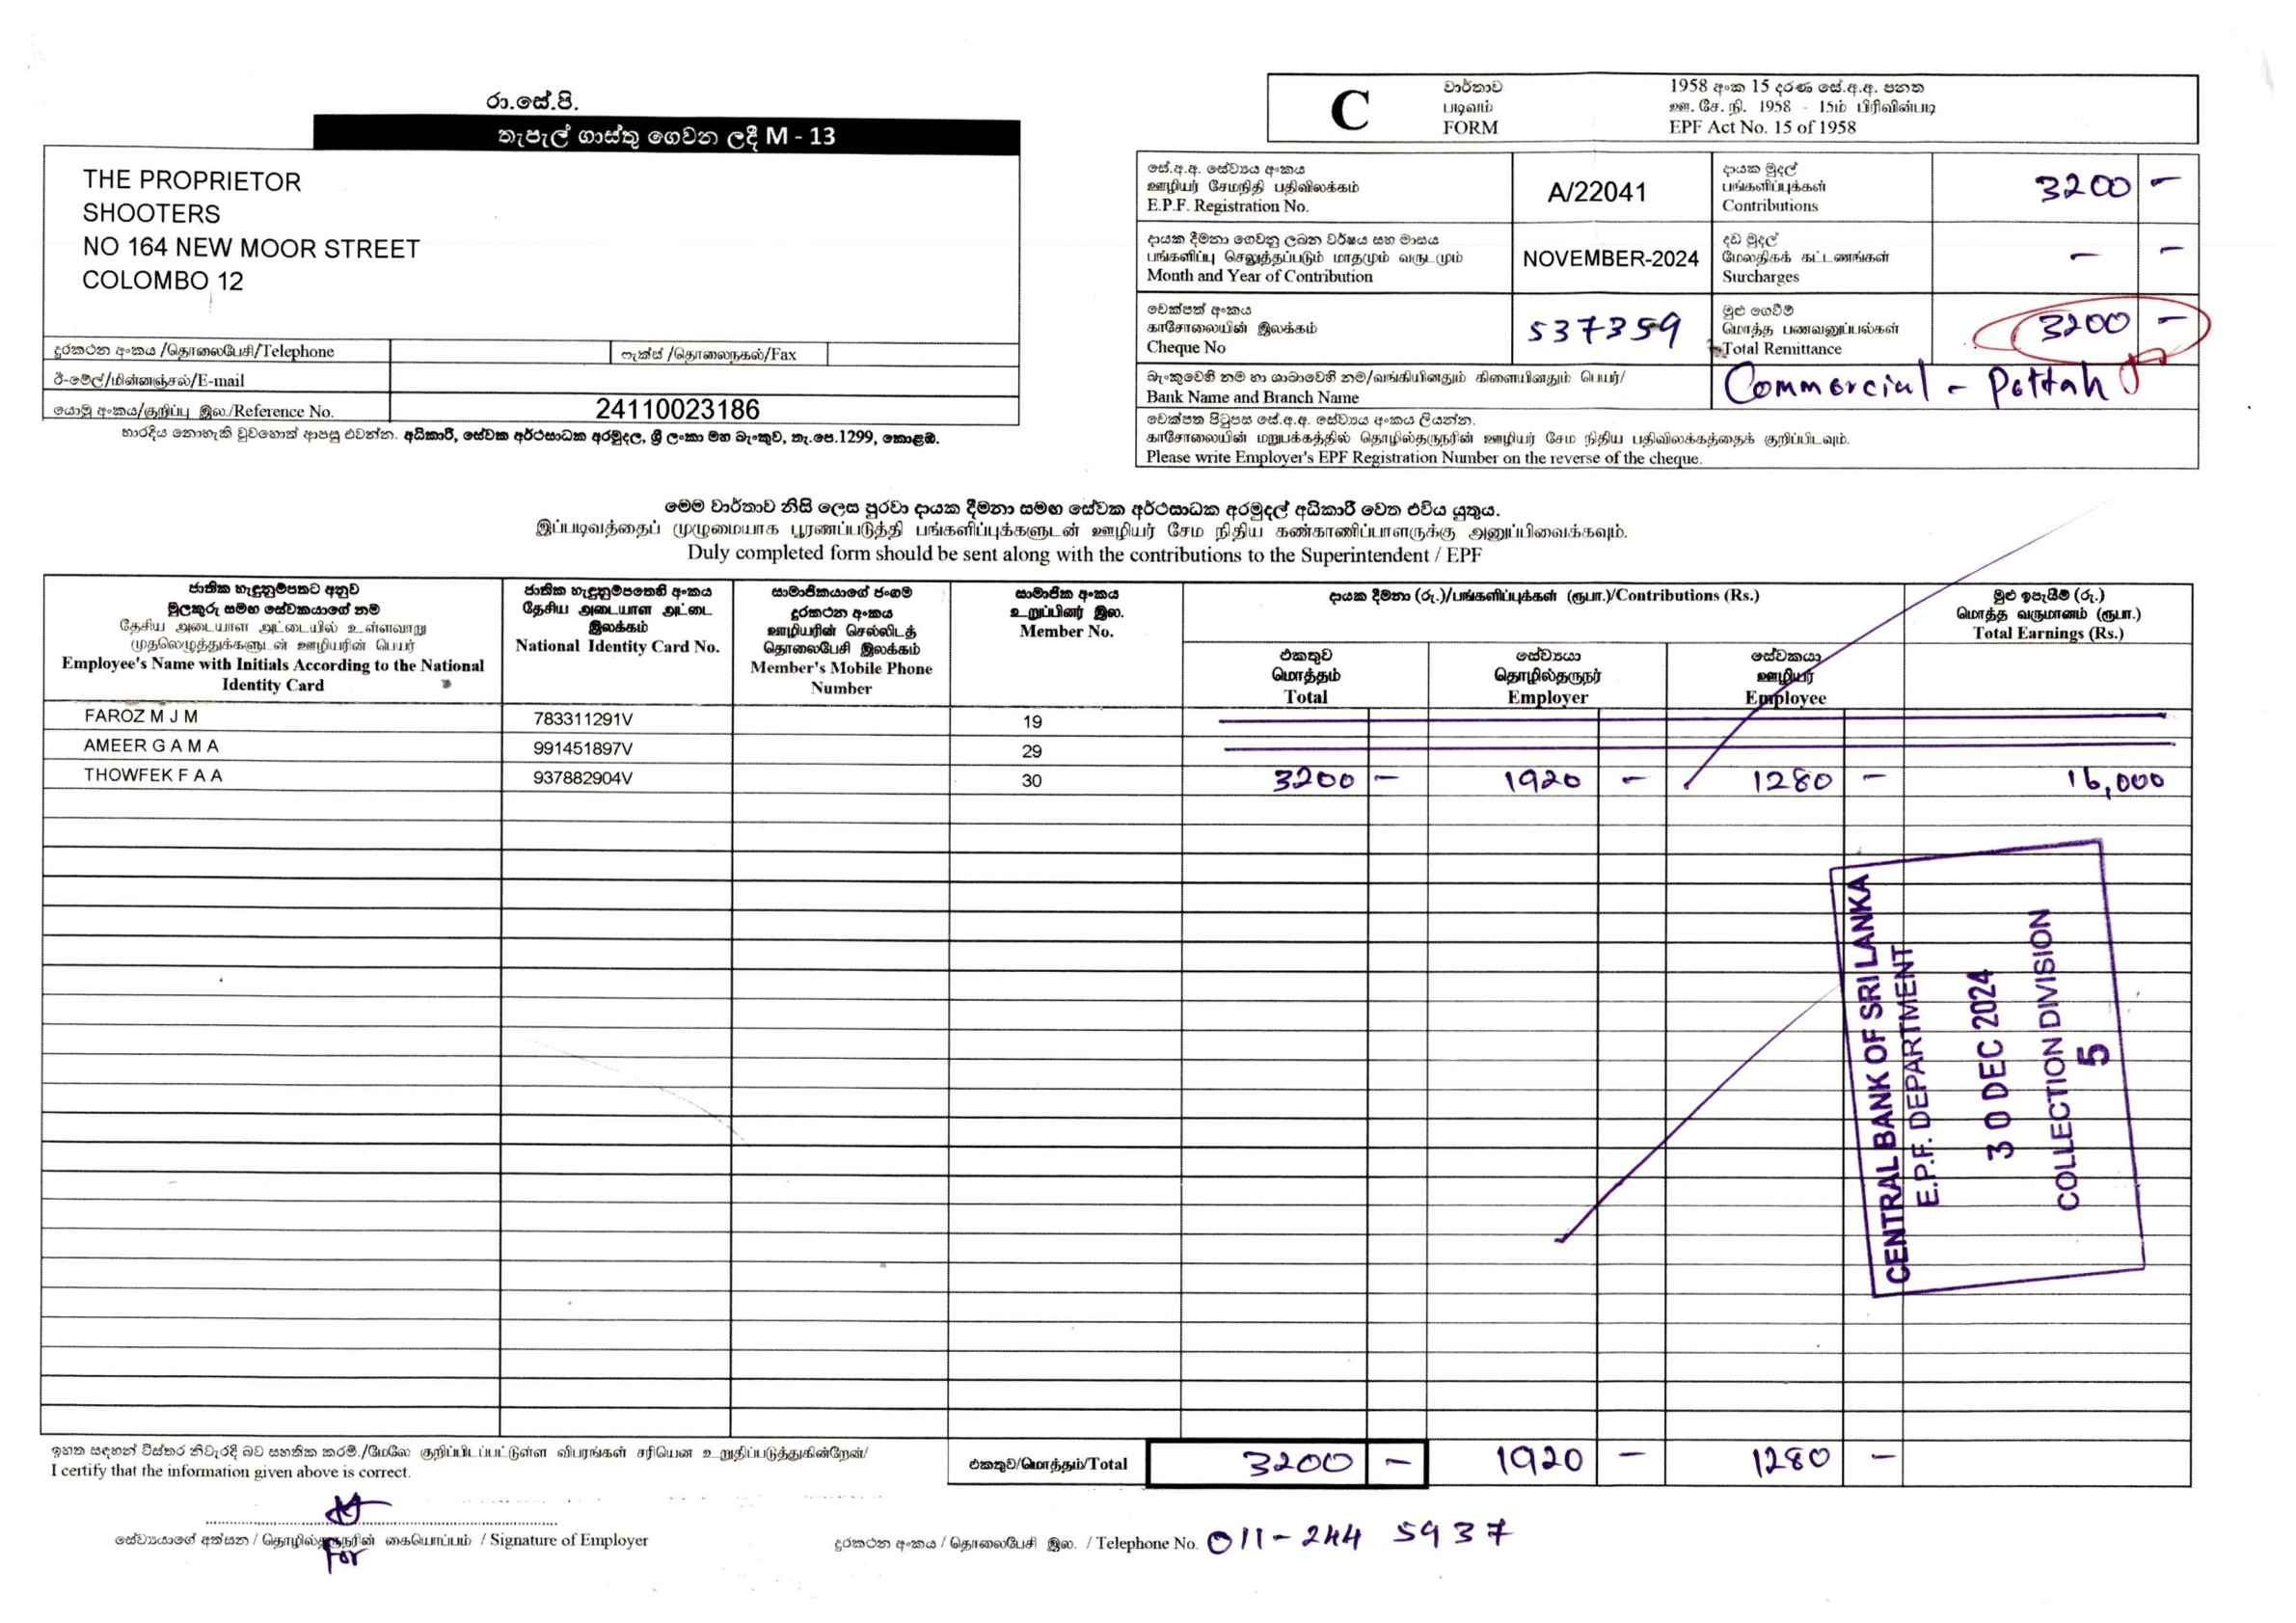 රා.සේ.පි.
තැපැල් ගාස්තු ගෙවන ලදී M - 13
THE PROPRIETOR
SHOOTERS
NO 164 NEW MOOR STREET
COLOMBO 12
දුරකථන අංකය /தொலைபேசி/Telephone
ෆැක්ස් /தொலைநகல்/Fax
ඊ-මේල්/மின்னஞ்சல்/E-mail
යොමු අංකය/குறிப்பு இல./Reference No. 24110023186
භාරදිය නොහැකි වුවහොත් ආපසු එවන්න. අධිකාරී, සේවක අර්ථසාධක අරමුදල, ශ්‍රී ලංකා මහ බැංකුව, තැ.පෙ.1299, කොළඹ.
C
වාර්තාව
படிவம்
FORM
1958 අංක 15 දරණ සේ.අ.අ. පනත
ஊ. சே. நி. 1958 - 15ம் பிரிவின்படி
EPF Act No. 15 of 1958
සේ.අ.අ. සේව්‍යය අංකය
ஊழியர் சேமநிதி பதிவிலக்கம்
E.P.F. Registration No.
A/22041
දායක මුදල්
பங்களிப்புக்கள்
Contributions
3200 -
දායක දීමනා ගෙවනු ලබන වර්ෂය සහ මාසය
பங்களிப்பு செலுத்தப்படும் மாதமும் வருடமும்
Month and Year of Contribution
NOVEMBER-2024
දඩ මුදල්
மேலதிகக் கட்டணங்கள்
Surcharges
- -
චෙක්පත් අංකය
காசோலையின் இலக்கம்
Cheque No
537359
මුළු ගෙවීම්
மொத்த பணவனுப்பல்கள்
Total Remittance
3200 -
බැංකුවෙහි නම හා ශාඛාවෙහි නම/வங்கியினதும் கிளையினதும் பெயர்/
Bank Name and Branch Name
Commercial - Pettah
චෙක්පත පිටුපස සේ.අ.අ. සේව්‍යය අංකය ලියන්න.
காசோலையின் மறுபக்கத்தில் தொழில்தருநரின் ஊழியர் சேம நிதிய பதிவிலக்கத்தைக் குறிப்பிடவும்.
Please write Employer's EPF Registration Number on the reverse of the cheque.
මෙම වාර්තාව නිසි ලෙස පුරවා දායක දීමනා සමඟ සේවක අර්ථසාධක අරමුදල් අධිකාරී වෙත එවිය යුතුය.
இப்படிவத்தைப் முழுமையாக பூரணப்படுத்தி பங்களிப்புக்களுடன் ஊழியர் சேம நிதிய கண்காணிப்பாளருக்கு அனுப்பிவைக்கவும்.
Duly completed form should be sent along with the contributions to the Superintendent / EPF
ජාතික හැඳුනුම්පතට අනුව
මුලකුරු සමඟ සේවකයාගේ නම
தேசிய அடையாள அட்டையில் உள்ளவாறு
முதலெழுத்துக்களுடன் ஊழியரின் பெயர்
Employee's Name with Initials According to the National
Identity Card
ජාතික හැඳුනුම්පතෙහි අංකය
தேசிய அடையாள அட்டை
இலக்கம்
National Identity Card No.
සාමාජිකයාගේ ජංගම
දුරකථන අංකය
ஊழியரின் செல்லிடத்
தொலைபேசி இலக்கம்
Member's Mobile Phone
Number
සාමාජික අංකය
உறுப்பினர் இல.
Member No.
දායක දීමනා (රු.)/பங்களிப்புக்கள் (ரூபா.)/Contributions (Rs.)
එකතුව
மொத்தம்
Total
සේව්‍යයා
தொழில்தருநர்
Employer
සේවකයා
ஊழியர்
Employee
මුළු ඉපැයීම් (රු.)
மொத்த வருமானம் (ரூபா.)
Total Earnings (Rs.)
FAROZ M J M 783311291V 19
AMEER G A M A 991451897V 29
THOWFEK F A A 937882904V 30 3200 - 1920 - 1280 - 16,000
CENTRAL BANK OF SRI LANKA
E.P.F. DEPARTMENT
30 DEC 2024
COLLECTION DIVISION
5
ඉහත සඳහන් විස්තර නිවැරදි බව සහතික කරමි./மேலே குறிப்பிடப்பட்டுள்ள விபரங்கள் சரியென உறுதிப்படுத்துகின்றேன்/
I certify that the information given above is correct.
එකතුව/மொத்தம்/Total 3200 - 1920 - 1280 -
සේව්‍යයාගේ අත්සන / தொழில்தருநரின் கையொப்பம் / Signature of Employer
For
දුරකථන අංකය / தொலைபேசி இல. / Telephone No. 011-244 5937